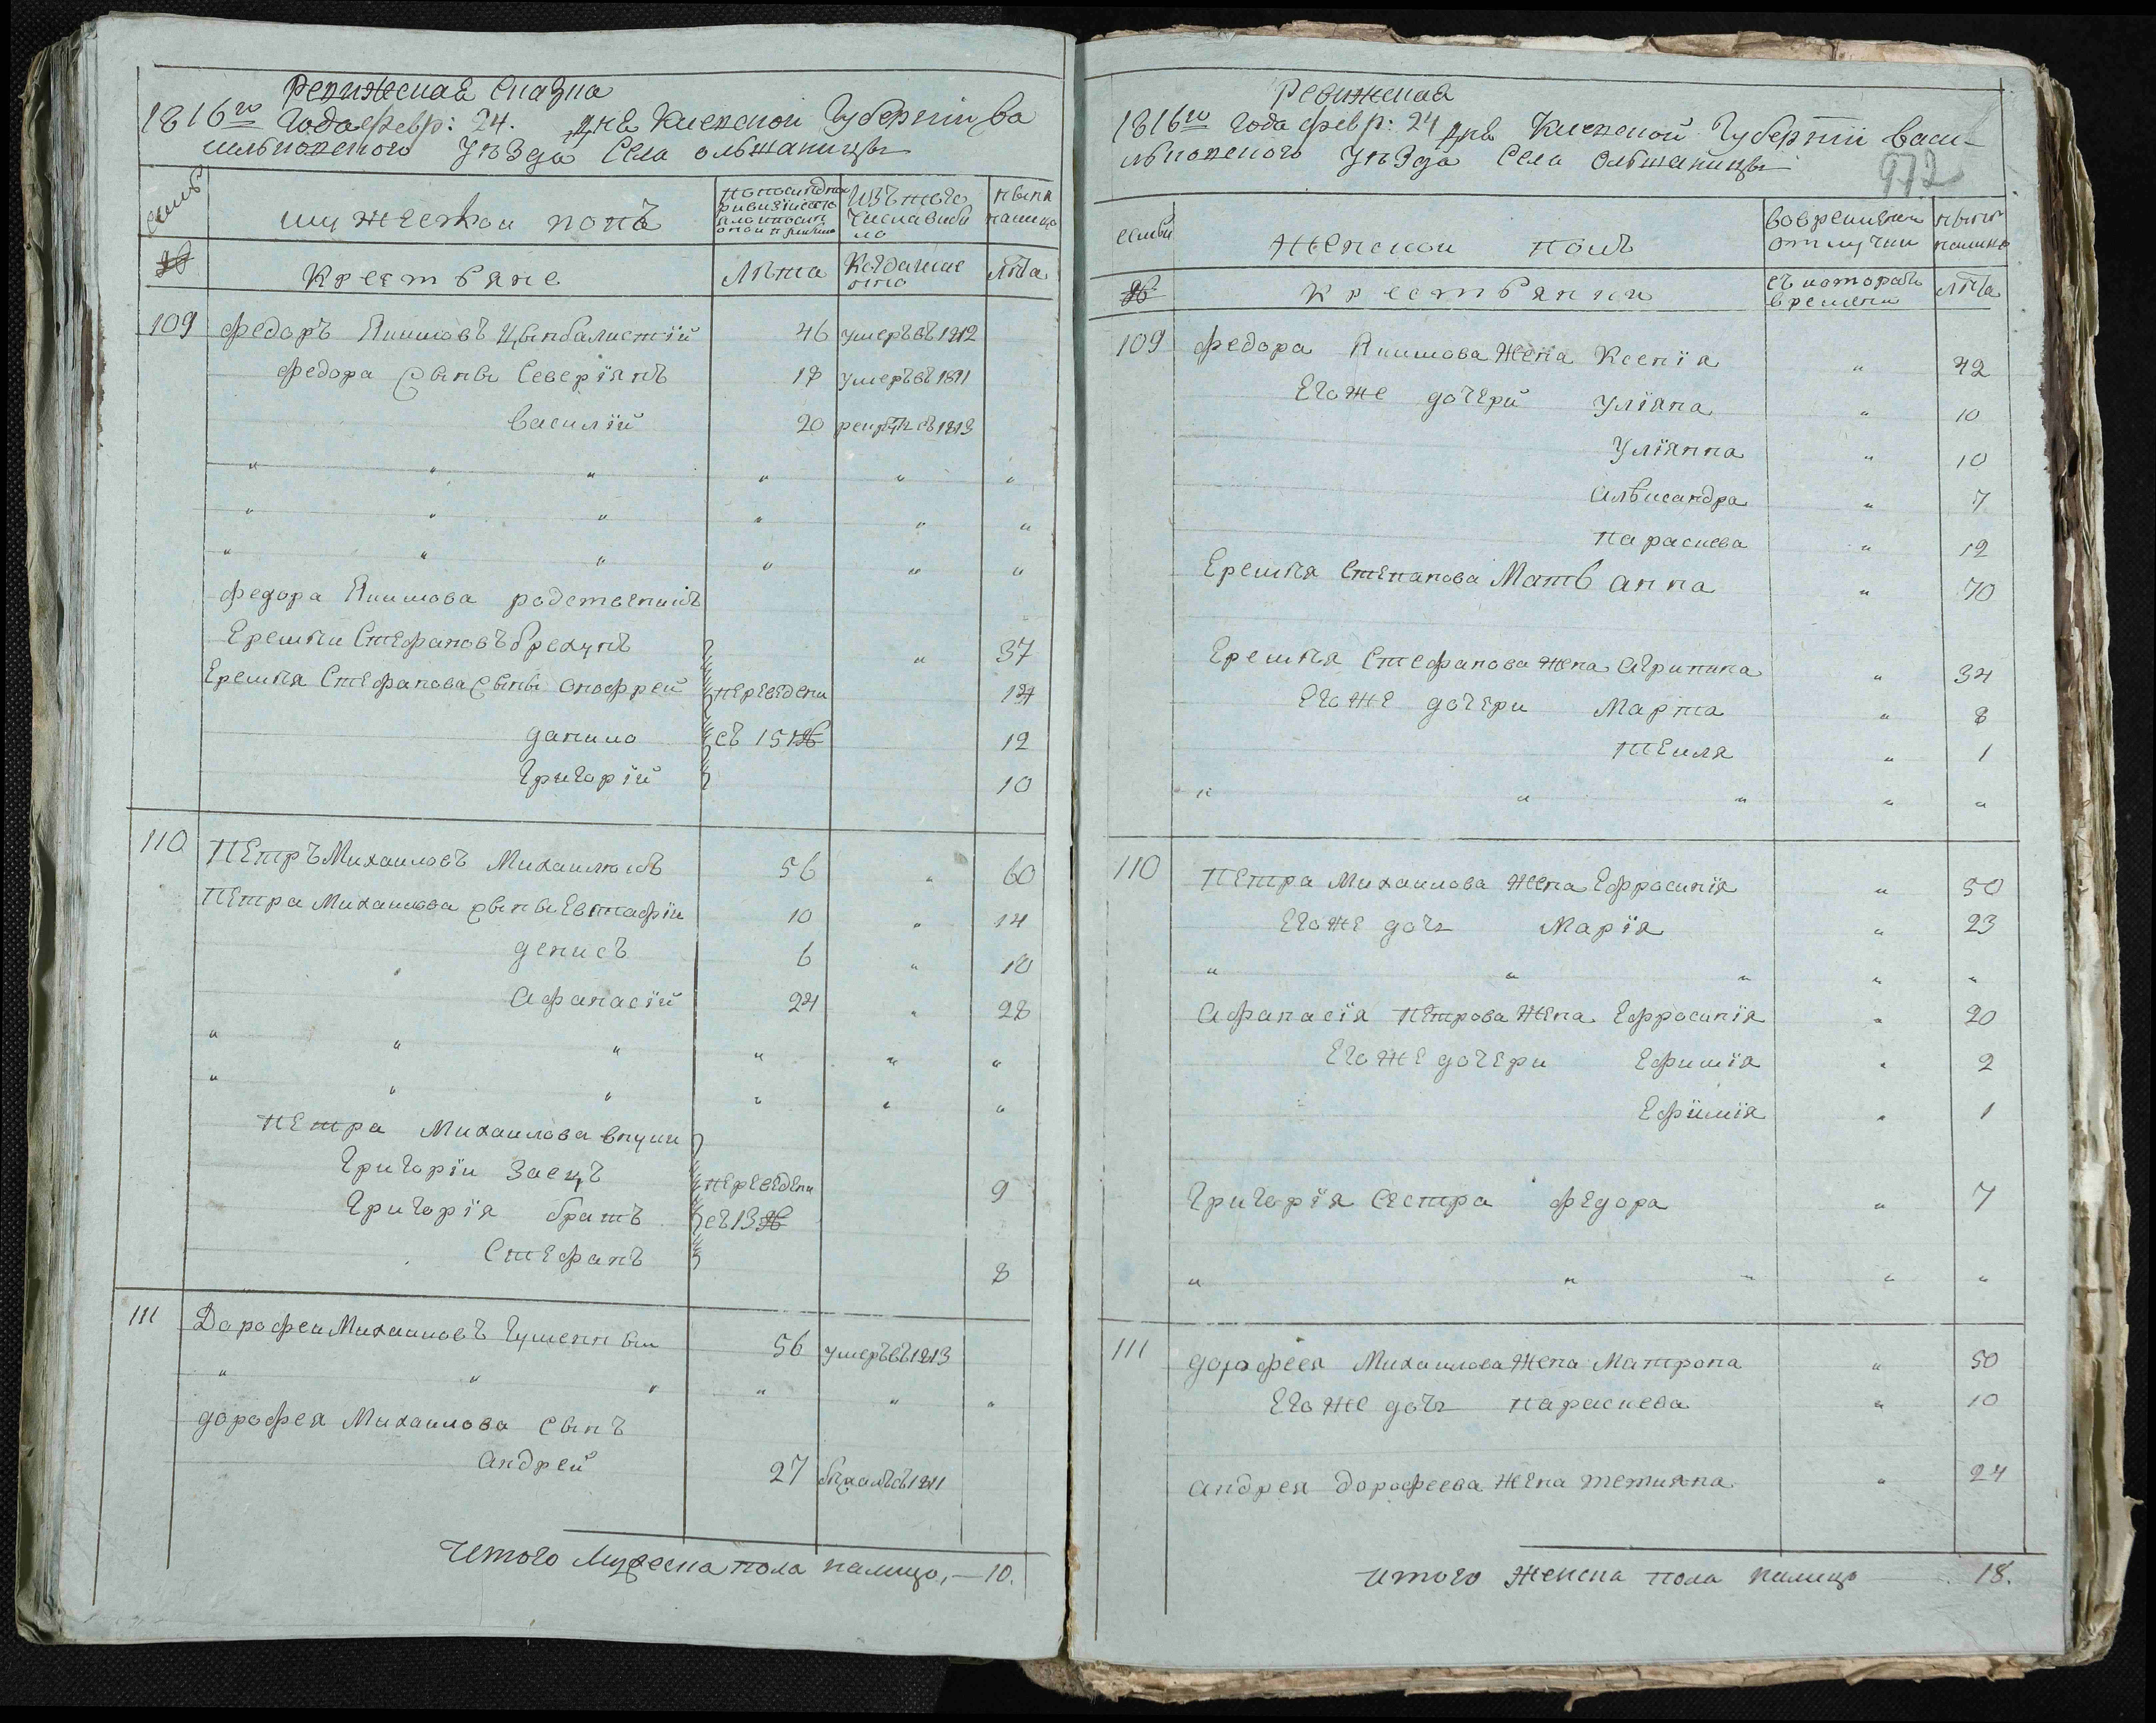 Ревижская Сказка
1816го Года февр: 24. дня Киевской Губернїи Ва
сильковского уѣзда Села ольшаницы
семьи
мужескои полъ
по последней ревизїи состояло и после оной прибыло
Изъ того числа выбыло
ныне налицо
№
Крестьяне
Лѣта
Когда именно
лѣта
109 федоръ Якимовъ Цымбалистїй 46 умеръ въ 1812
федора сыны Северїянъ 18 умеръ въ 1811
василїй 20 рекрутъ въ 1813
" " " " " "
" " " " " "
" " " " " "
федора Якимова родственникъ
Еремѣи Стефановъ брехунъ " 37
Еремѣя Стефанова сыны онофрей переведени 14
данило съ 151 № 12
григорїй 10
110 Петръ Михаиловъ Михаилюкъ 56 " 60
Петра Михаилова сыны Евтафїи 10 " 14
денисъ 6 " 10
Афанасїй 24 " 28
" " " " " "
" " " " " "
Петра Михаилова внуки
григорїи Заецъ переведени 9
григорїя братъ съ 13 №
Стефанъ 8
111 Дорофеи Михаиловъ Гуменный 56 умеръ въ 1813
" " " " " "
дорофея Михаилова сынъ
Андрей 27 бѣжалъ въ 1811
Итого Мужеска пола налицо, — 10.
Ревижская
1816го Года февр: 24 дня Киевской Губернїи Васи-
льковского уѣзда Села Ольшаницы
972
семьи
женскои полъ
во временной отлучки
ныне налицо
№
Крестьянки
съ которагѡ времени
лѣта
109 федора Якимова жена Ксенїя " 42
Егоже дочери Улїяна " 10
Улїянна " 10
Александра " 7
Параскева " 12
Еремѣя Степанова Мать анна " 70
Еремѣя Стефанова жена Агрипина " 34
Егоже дочери Марта " 8
Текля " 1
" " " " "
110 Петра Михаилова жена Ефросинїя " 50
Егоже дочь Марїя " 23
" " " " "
Афанасїя Петрова жена Ефросинїя " 20
Егоже дочери Ефимїя " 2
Ефїмїя " 1
григорїя Сестра федора " 7
" " " " "
111 дорофеея Михаилова жена Матрона " 50
Егоже дочь параскева " 10
андрея дорофеева жена тетияна " 24
итого женска пола налицо 18.